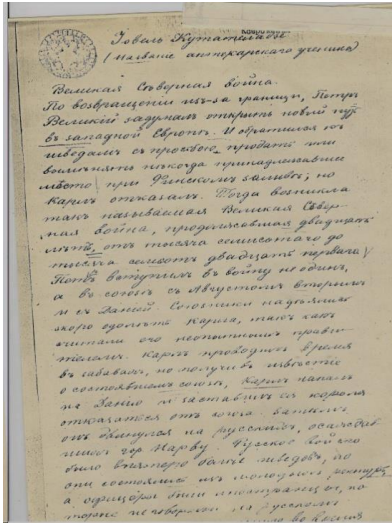 Іовель Кутателадзе
(на званіе аптекарскаго ученика)
Великая Сѣверная война.
По возвращеніи изъ-за границы, Петръ
Великій задумалъ открыть новый путь
въ западной Европѣ. И обратился къ
шведамъ съ просьбою продать или
вымѣнять нѣкогда принадлежавшее
мѣсто при Финскомъ заливѣ; но
Карлъ отказалъ. Тогда возникла
такъ называемая Великая Сѣвер-
ная война, продолжавшая двадцать
лѣтъ, отъ тысяча семисотаго до
тысяча семьсотъ двадцать перваго
Петръ вступилъ въ войну не одинъ,
а въ союзѣ съ Августомъ вторымъ
и съ Даніей. Союзники надѣялись
скоро одолѣть Карла, такъ какъ
считали его неопытнымъ прави-
телемъ. Карлъ проводилъ время
въ забавахъ, но получивъ извѣстіе
о состоявшемъ союзѣ, Карлъ напалъ
на Данію и заставилъ ея короля
отказаться отъ союза. Затѣмъ
онъ двинулся на русскихъ, осаждав
шихъ гор. Нарву. Русское войско
было впятеро больше шведовъ, но
они состоялись изъ молодыхъ
а офицеры были иностранцы, но